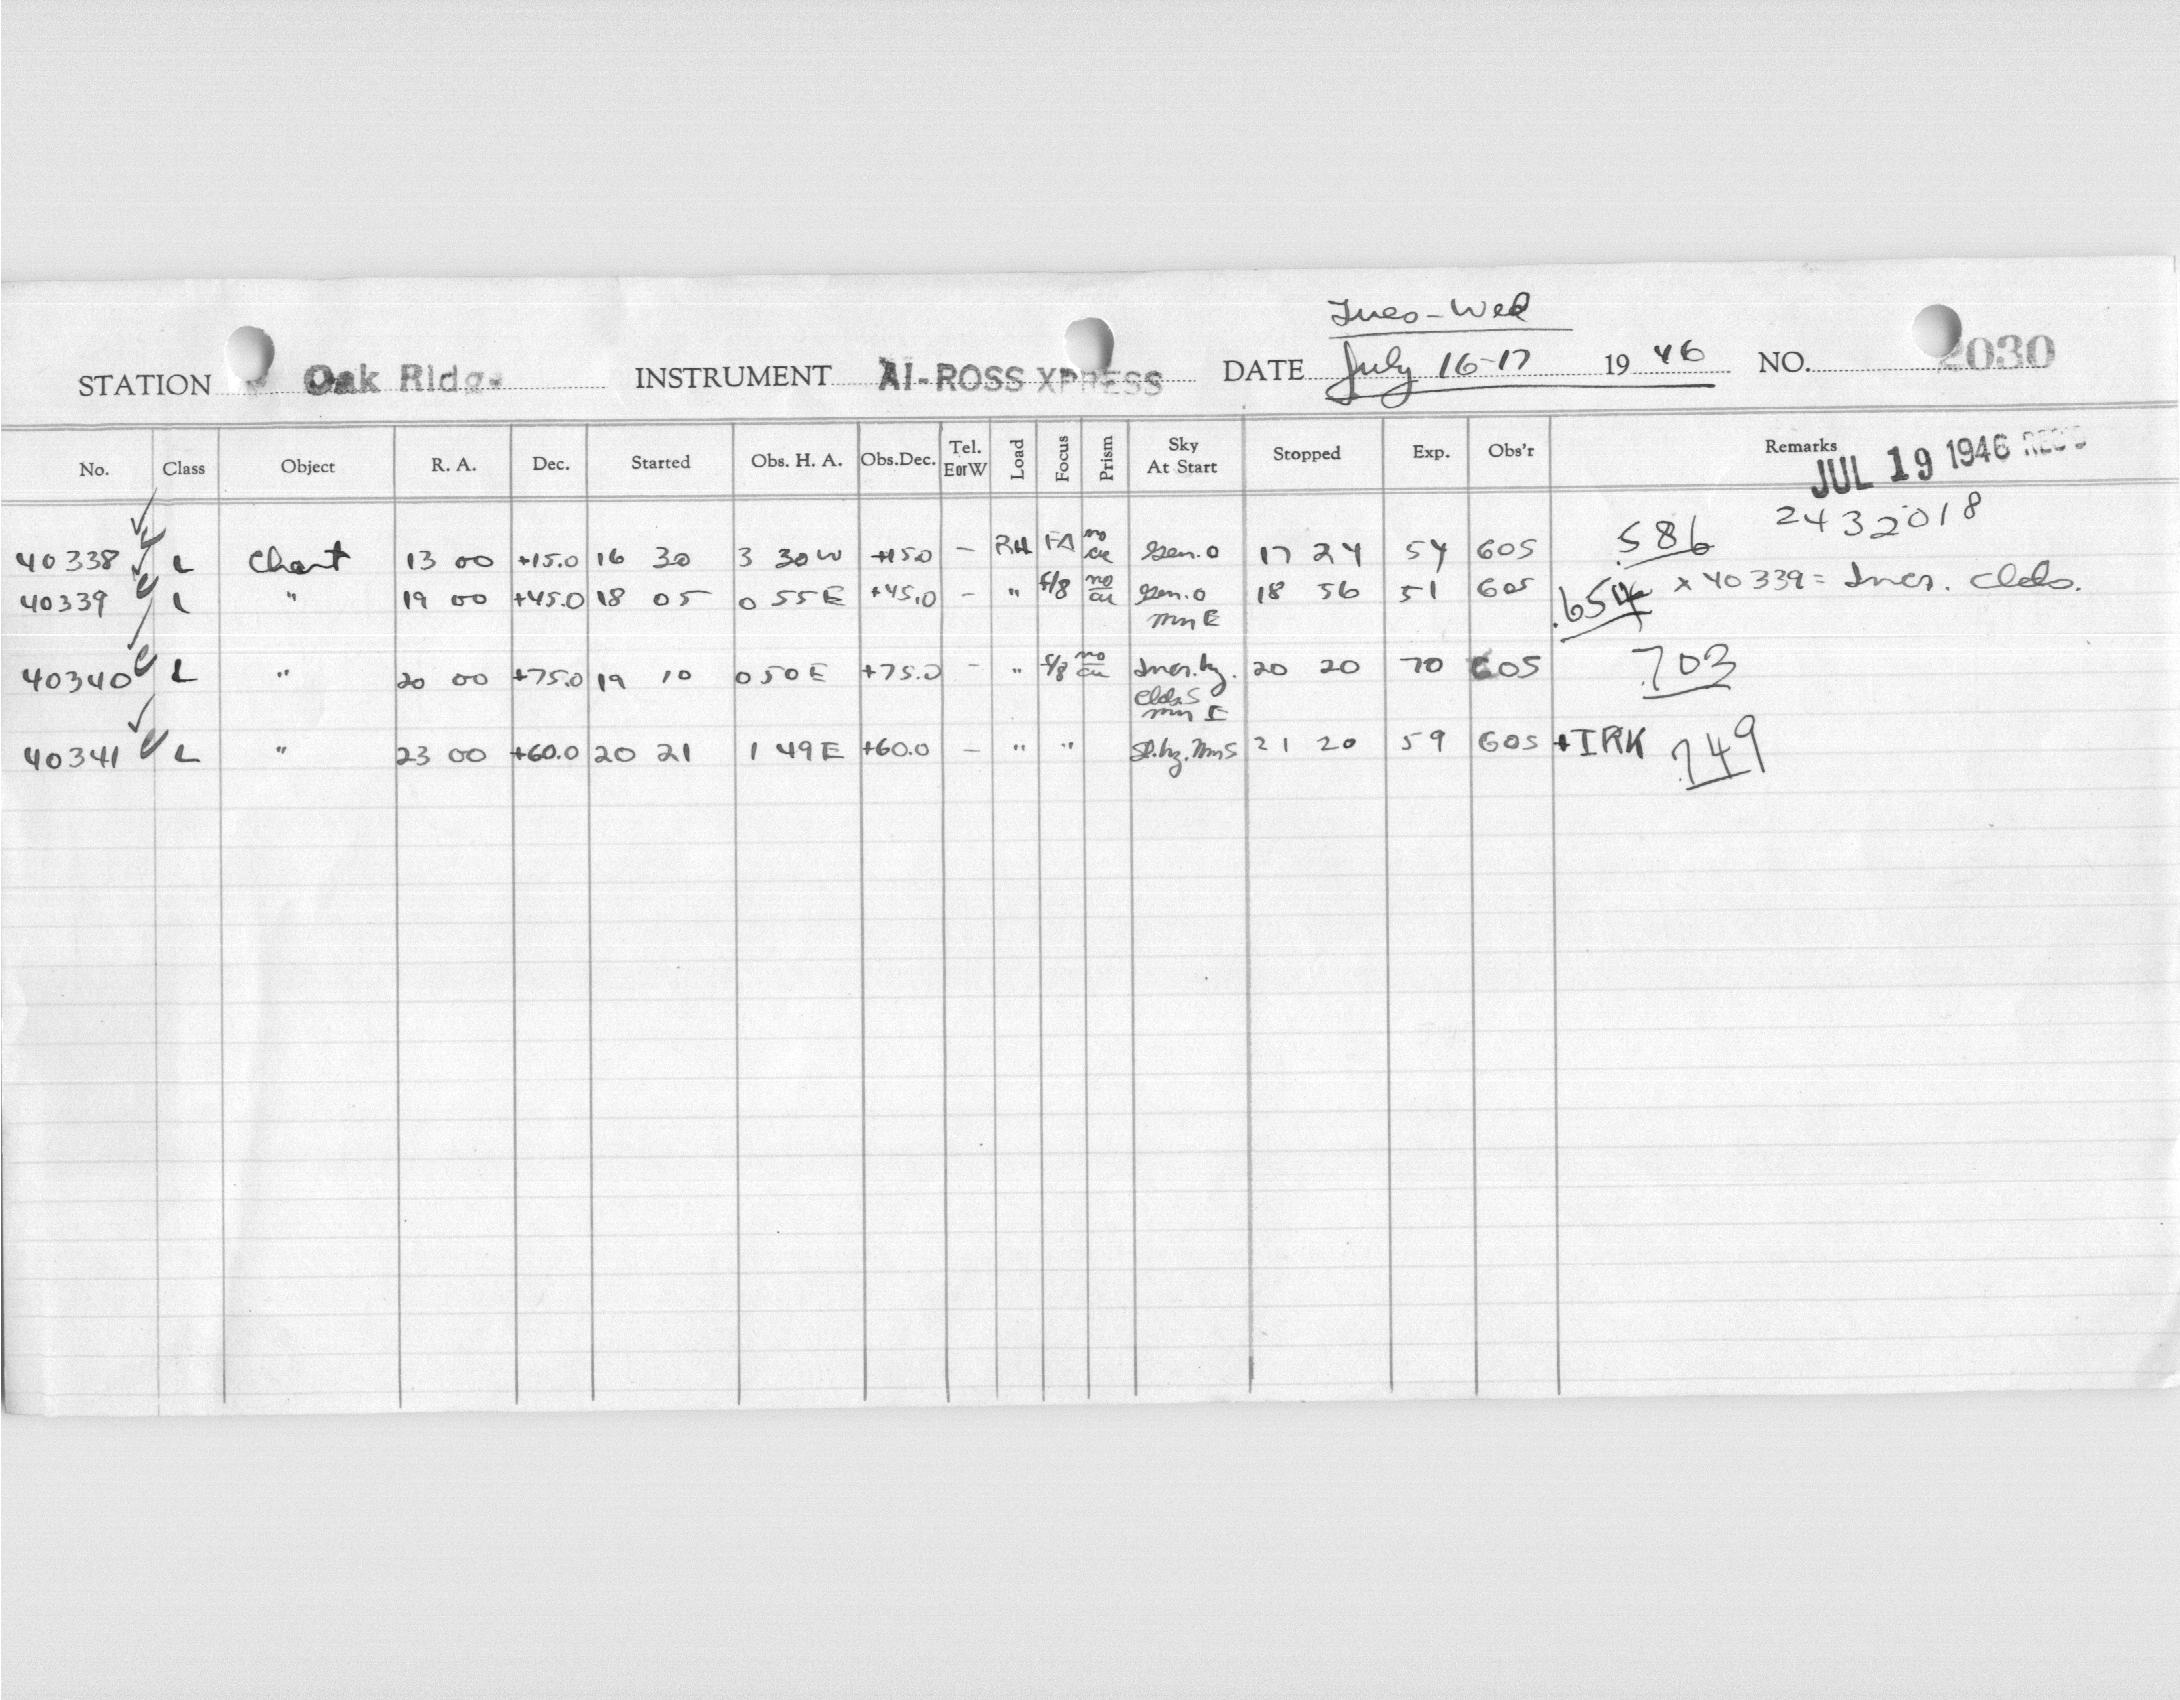 Tues-Wed
STATION Oak Ridge INSTRUMENT AI-ROSS XPRESS DATE July 16-17 1946 NO. 2030
No. Class Object R. A. Dec. Started Obs. H. A. Obs.Dec. Tel. E or W Load Focus Prism Sky At Start Stopped Exp. Obs'r Remarks
JUL 19 1946 REC'D
2432018
40338 L Chart 13 00 +15.0 16 30 3 30 W +15.0 - RH FA no cu Gen. 0 17 24 54 GOS .586
40339 L " 19 00 +45.0 18 05 0 55 E +45.0 - " f/8 no cu Gen. 0 18 56 51 GOS .654 x 40339 = Incr. clds.
mn E
40340 L " 20 00 +75.0 19 10 0 50 E +75.0 - " f/8 no cu Incr. hz. 20 20 70 GOS .703
clds S
mn E
40341 L " 23 00 +60.0 20 21 1 49 E +60.0 - " " Sl. hz. Mn S 21 20 59 GOS + IRK .749